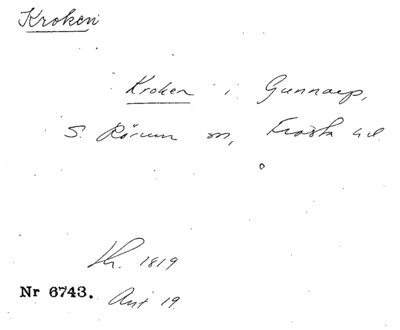 Kroken
Kroken i Gunnarp,
S. Rörum sn, Frosta hd.
Kr. 1819
Nr 6743. Avs 19